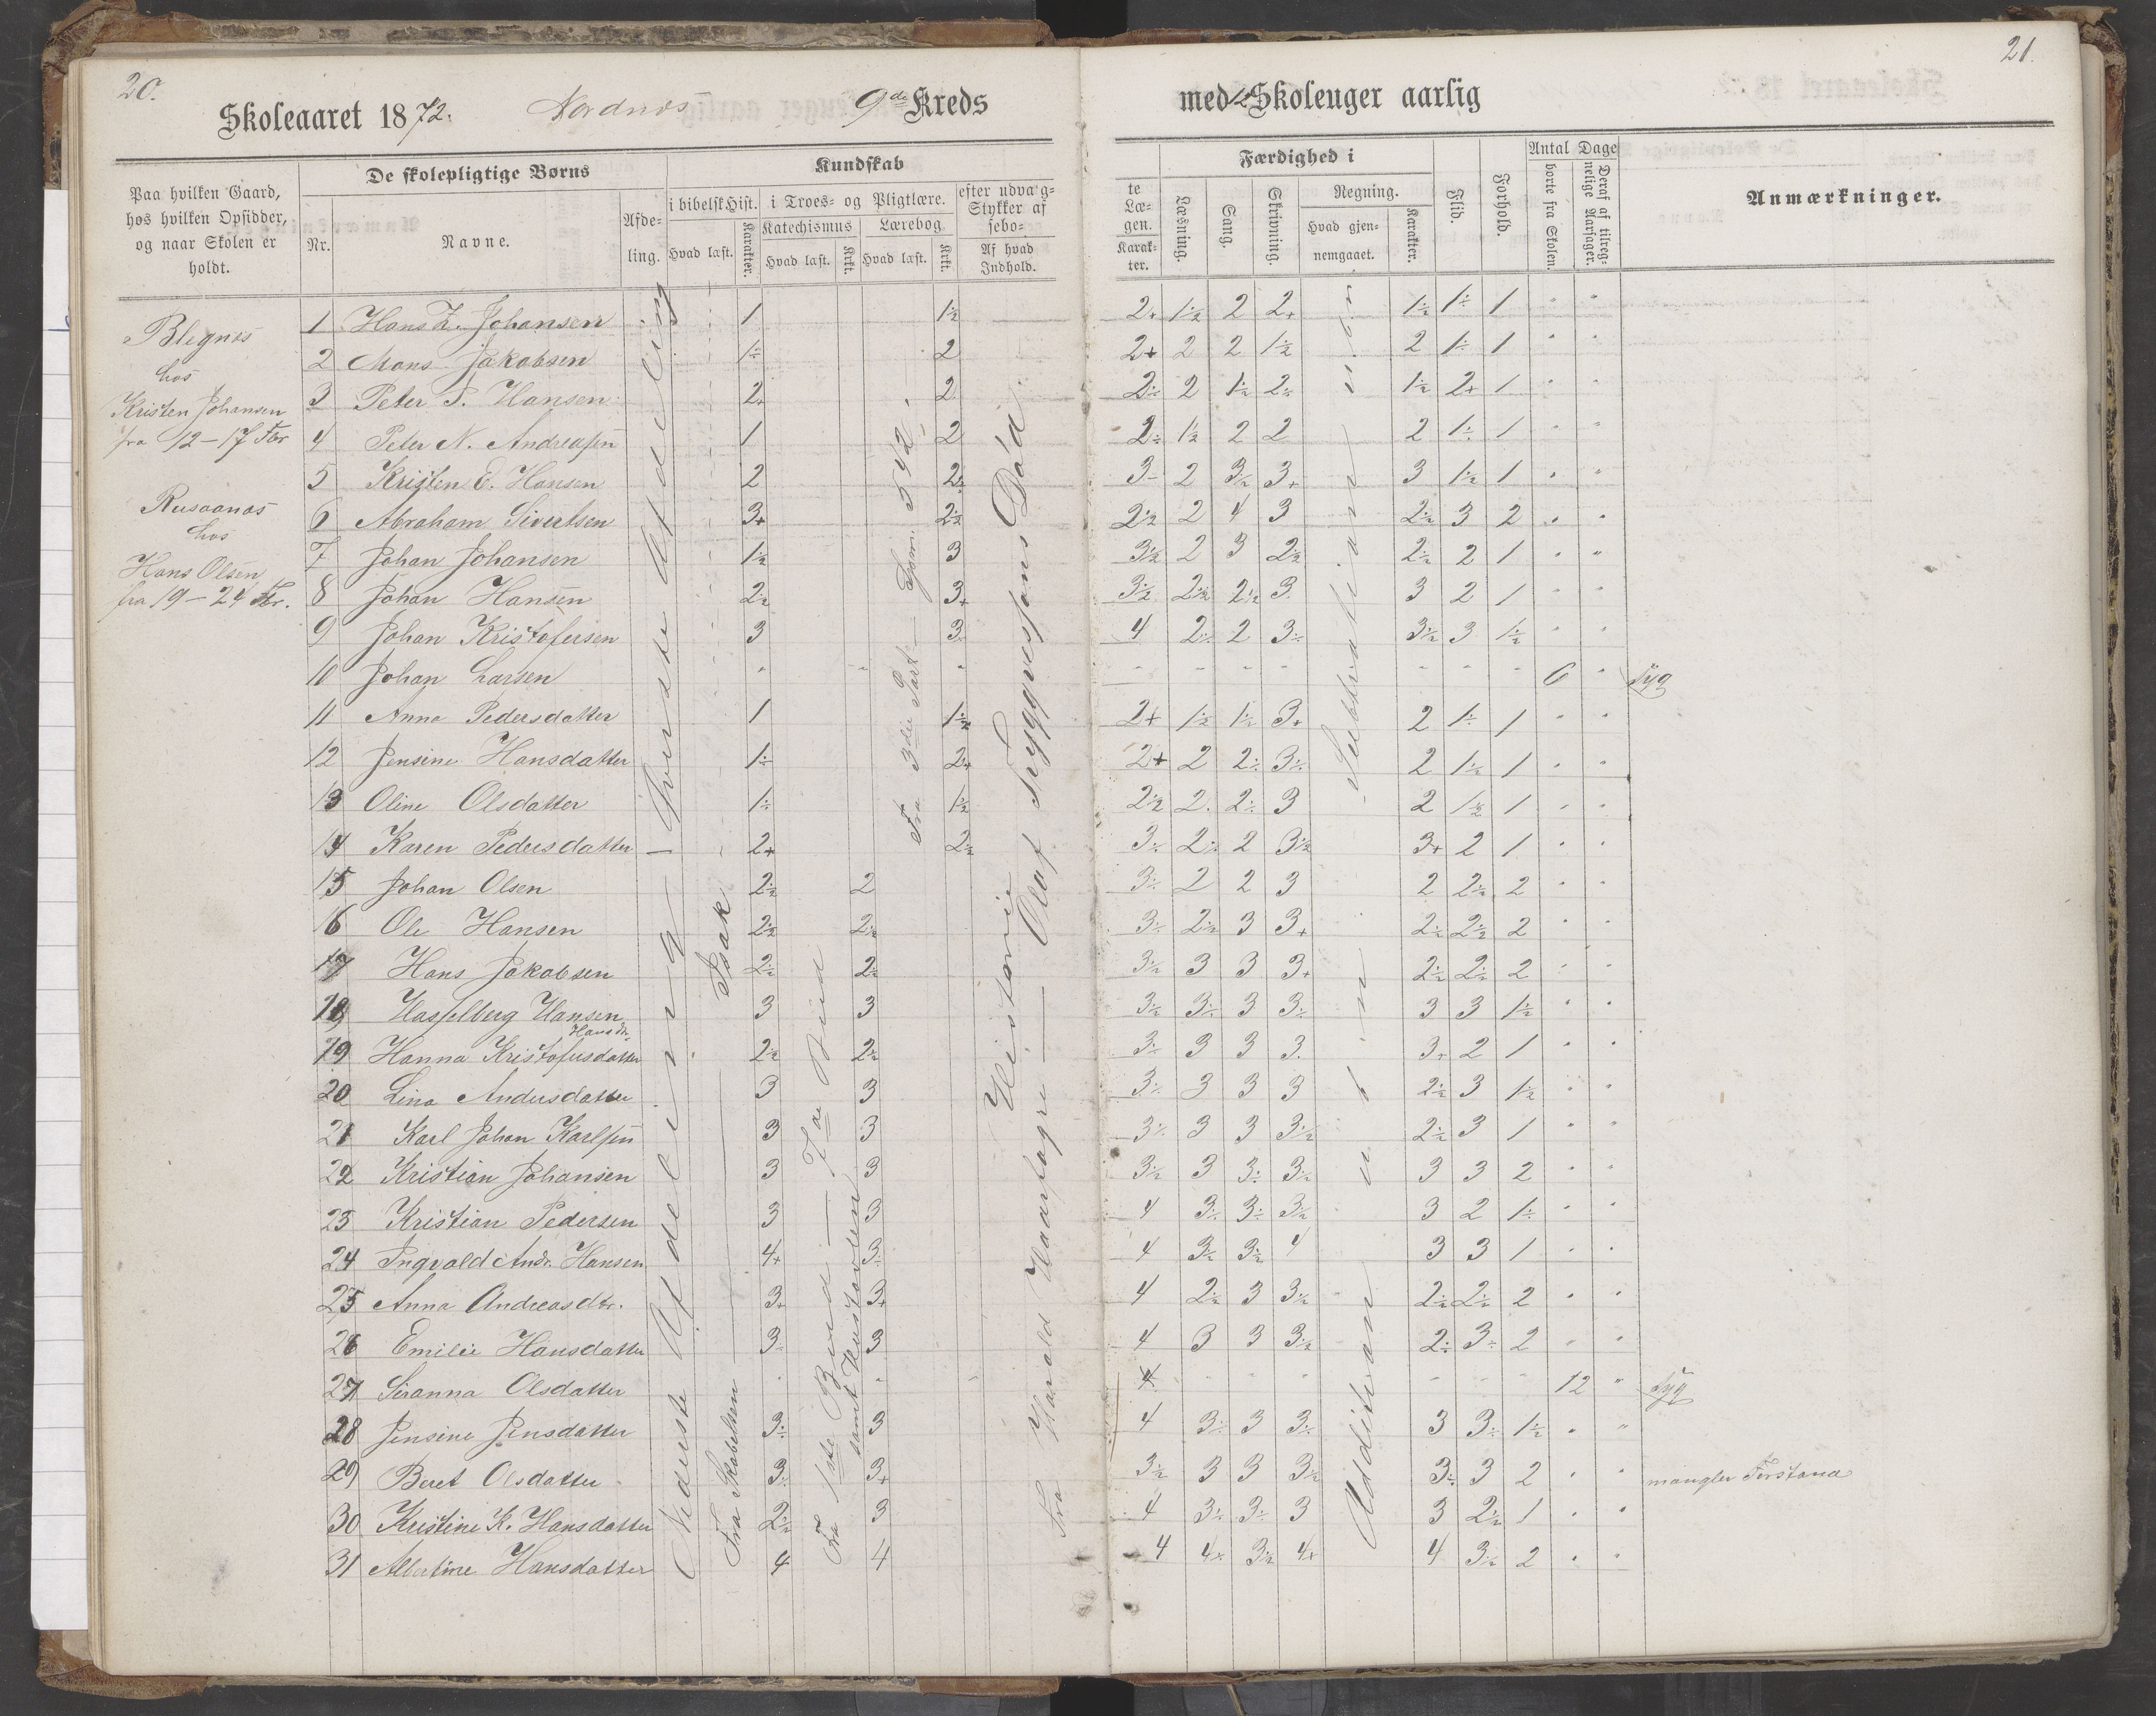 20.
Skoleaaret 1872. Nordnæs 9de Kreds
med Skoleuger aarlig
21.
Paa hvilken Gaard, hos hvilken Opsidder, og naar Skolen er holdt.
De skolepligtige Børns
Nr. Navne.
Afdeling.
Kundskab
i bibelsk Hist. i Troes- og Pligtlære.
Hvad læst. Karakter.
Katechismus Lærebog
Hvad læst. Krkt. Hvad læst. Krkt.
efter udvalg-
Stykker af
sebo-
Af hvad
Indhold.
te
Læ-
gen.
Karak-
ter.
Færdighed i
Læsning. Sang. Skrivning.
Regning.
Hvad gjen-
nemgaaet. Karakter.
Flid. Forhold.
Antal Dage
borte fra Skolen. Deraf af tilreg-
nelige Aarsager.
Anmærkninger.
Blegnæs
hos
Kristen Johansen
fra 12-17 Fbr
Rusaanæs
hos
Hans Olsen
fra 19-24 Fbr.
1 Hans Z. Johansen 1 1÷2 2+ 1÷2 2 2+ 1÷2 1÷ 1 " "
2 Mons Jakobsen 1÷ 2 2+ 2 2 1÷2 2 1÷ 1 " "
3 Peter P. Hansen 2+ 2 2÷ 2 1÷2 2÷ 1÷2 2+ 1 " "
4 Peter N. Andreassen 1 2 2÷ 1÷2 2 2 2 1÷ 1 " "
5 Kristen E. Hansen 2 2÷ 3÷ 2 3÷2 3+ 3 1÷2 1 " "
6 Abraham Sivertsen 3+ 2÷2 2÷2 2 4 3 2÷2 3 2 " "
7 Johan Johansen 1÷2 3 3÷2 2 3 2÷2 2÷2 2 1 " "
8 Johan Hansen 2÷2 3+ 3÷2 2÷2 2÷2 3 3 2 1 " "
9 Johan Kristofersen 3 3 4 2÷ 2 3÷ 3÷2 3 1÷2 " "
10 Johan Larsen " " " " " " " " " " 6 " syg
11 Anna Pedersdatter 1 1÷2 2+ 1÷2 1÷2 3+ 2 1÷ 1 " "
12 Jensine Hansdatter 1÷ 2+ 2+ 2 2÷ 3÷ 2 1÷2 1 " "
13 Oline Olsdatter 1÷ 1÷2 2÷2 2 2÷ 3 2 1÷2 1 " "
14 Karen Pedersdatter 2+ 2÷2 3÷ 2÷ 2 3÷2 3+ 2 1 " "
15 Johan Olsen 2÷2 2 3÷ 2 2 3 2 2÷2 2 " "
16 Ole Hansen 2÷2 2÷2 3÷ 2÷2 3 3+ 2÷2 2÷2 2 " "
17 Hans Jakobsen 2÷2 2÷2 3÷2 3 3 3+ 2÷2 2÷2 2 " "
18 Hasselberg Hansen 3 3 3÷2 3÷ 3 3÷ 3 3 1÷2 " "
Hansdr.
19 Hanna Kristofersdatter 2÷2 2÷2 3÷ 3 3 3 3+ 2 1 " "
20 Lina Andersdatter 3 3 3÷ 3 3 3 2÷2 3 1÷2 " "
21 Karl Johan Karlsen 3 3 3÷ 3 3 3÷2 2÷2 3 1 " "
22 Kristian Johansen 3 3 3÷2 3 3÷ 3÷2 3 3 2 " "
23 Kristian Pedersen 3 3 4 3÷ 3÷ 3÷2 3 2 1÷ " "
24 Ingvald Andr. Hansen 4+ 3÷ 4 3÷2 3÷2 4 3 3 1 " "
25 Anna Andreasdtr. 3+ 3+ 4 2÷2 3 3÷2 2÷2 2÷2 2 " "
26 Emilie Hansdatter 3÷ 3 4 3 3 3÷2 2÷ 3÷ 2 " "
27 Siranna Olsdatter " " " " " " " " " 12 " syg
28 Jensine Jensdatter 3÷ 3 4 3÷ 3 3÷ 3 3÷ 1÷2 " "
29 Beret Olsdatter 3÷ 3+ 3÷2 3 3 3÷2 3÷ 3 2 " " mangler Forstand
30 Kristine K. Hansdatter 2÷2 3 4 3÷ 3÷ 3 3 2÷2 1 " "
31 Albertine Hansdatter 4 4 4 4+ 3÷2 4+ 4 3÷2 2 " "
Øverste Afdeling
Nederste Afdeling
Fra Skabelsen
Isak
Fra 1ste Bud
samt Hustavlen
7de Bud
Fra 3die Part
542
Historie
Fra Harald Haarfagre — Olaf Tryggvesøns Død.
Subtraktionen
Additionen